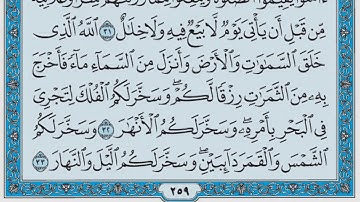 مِّن قَبْلِ أَن يَأْتِيَ يَوْمٌ لَّا بَيْعٌ فِيهِ وَلَا خِلَٰلٌ ٣١ ٱللَّهُ ٱلَّذِي
خَلَقَ ٱلسَّمَٰوَٰتِ وَٱلْأَرْضَ وَأَنزَلَ مِنَ ٱلسَّمَآءِ مَآءً فَأَخْرَجَ
بِهِۦ مِنَ ٱلثَّمَرَٰتِ رِزْقًا لَّكُمْ ۖ وَسَخَّرَ لَكُمُ ٱلْفُلْكَ لِتَجْرِيَ
فِي ٱلْبَحْرِ بِأَمْرِهِۦ ۖ وَسَخَّرَ لَكُمُ ٱلْأَنْهَٰرَ ٣٢ وَسَخَّرَ لَكُمُ
ٱلشَّمْسَ وَٱلْقَمَرَ دَآئِبَيْنِ ۖ وَسَخَّرَ لَكُمُ ٱلَّيْلَ وَٱلنَّهَارَ ٣٣
٢٥٩